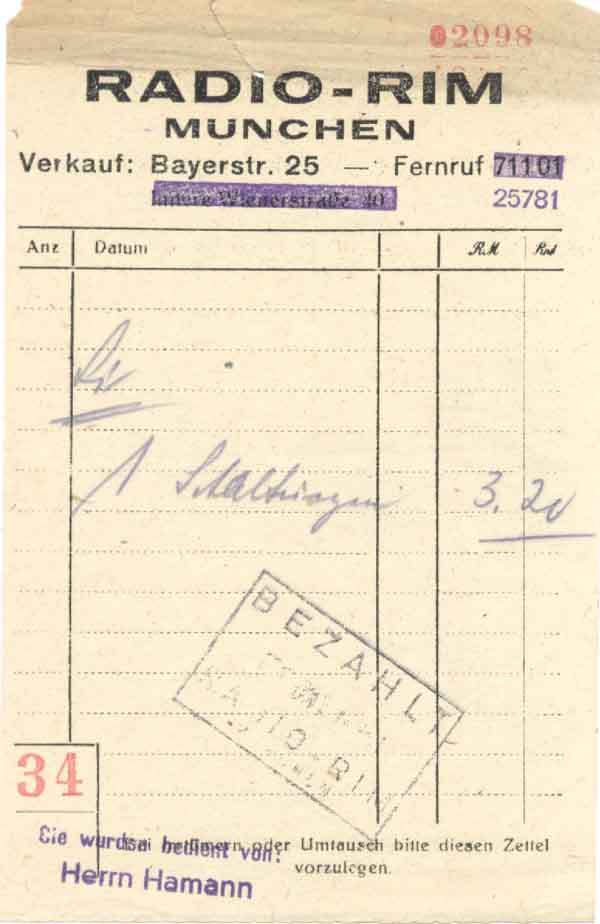 02098
RADIO-RIM
MÜNCHEN
Verkauf: Bayerstr. 25 — Fernruf 71101
Innere Wienerstraße 40 25781
Anz Datum RM
1 Schaltungen 3.20
BEZAHLT
RADIO-RIM
34
Bei Irrtümern oder Umtausch bitte diesen Zettel
vorzulegen.
Sie wurden bedient von:
Herrn Hamann